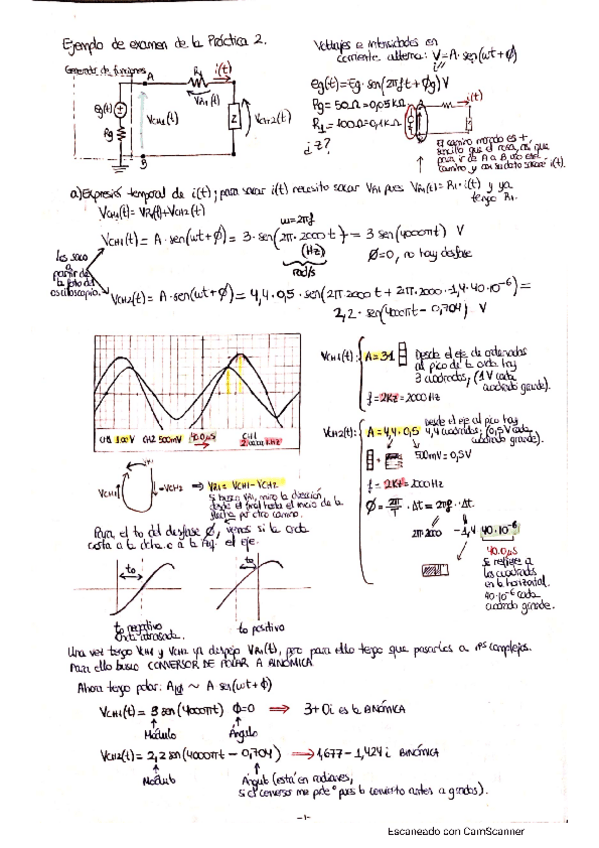 Ejemplo de examen de la Práctica 2.
Voltajes e intensidades en
corriente alterna: V = A · sen(ωt + ϕ)
Generador de funciones
A
R1
i(t)
VR1(t)
eg(t)
Rg
VCH1(t)
Z
VCH2(t)
B
eg(t) = Eg · sen(2πft + ϕg) V
Rg = 50Ω = 0,05kΩ
R1 = 100Ω = 0,1kΩ
¿Z?
i(t)
El camino morado es +,
sencillo que el rosa, así que
para ir de A a B uso ese
camino y con su dato sacar i(t).
a) Expresión temporal de i(t); para sacar i(t) necesito sacar VR1 pues VR1(t) = R1 · i(t) y ya
tengo R1.
VCH1(t) = VR1(t) + VCH2(t)
ω = 2πf
VCH1(t) = A · sen(ωt + ϕ) = 3 · sen(2π · 2000 t) = 3 sen(4000πt) V
(Hz)
rad/s
ϕ = 0, no hay desfase
Los saco
a
partir de
la foto del
osciloscopio.
VCH2(t) = A · sen(ωt + ϕ) = 4,4 · 0,5 · sen(2π · 2000 t + 2π · 2000 · -1,4 · 40 · 10⁻⁶) =
2,2 · sen(4000πt - 0,704) V
CH1 1.00V CH2 500mV 40.0µS CH1
VCH1(t):
A = 3·1
Desde el eje de ordenadas
al pico de la onda hay
3 cuadrados, (1 V cada
cuadrado grande).
f = 2KHz = 2000 Hz
VCH2(t):
A = 4,4 · 0,5
Desde el eje al pico hay
4,4 cuadrados; (0,5 V cada
cuadrado grande).
500mV = 0,5V
f = 2KHz = 2000 Hz
ϕ = 2π/T · Δt = 2πf · Δt
2π · 2000 -1,4 40 · 10⁻⁶
40.0µS
Se refiere a
los cuadrados
en la horizontal.
40 · 10⁻⁶ cada
cuadrado grande.
VCH1
-VCH2
⇒ VR1 = VCH1 - VCH2
Si busco VR1, miro la dirección
desde el final hasta el inicio de la
flecha por otro camino.
Para el t0 del desfase ϕ, vemos si la onda
corta a la dcha. o a la izq. el eje.
t0
t0
t0 negativo
onda atrasada.
t0 positivo
Una vez tengo VCH1 y VCH2 ya despejo VR1(t), pero para ello tengo que pasarlos a nºs complejos.
Para ello busco CONVERSOR DE POLAR A BINÓMICA
Ahora tengo polar: A|ϕ ~ A sen(ωt + ϕ)
VCH1(t) = 3 sen(4000πt) ϕ = 0 ⇒ 3 + 0i es la BINÓMICA
Módulo Ángulo
VCH2(t) = 2,2 sen(4000πt - 0,704) ⇒ 1,677 - 1,424 i BINÓMICA
Módulo
Ángulo (está en radianes,
si el conversor me pide ° pues lo convierto antes a grados).
-1-
Escaneado con CamScanner